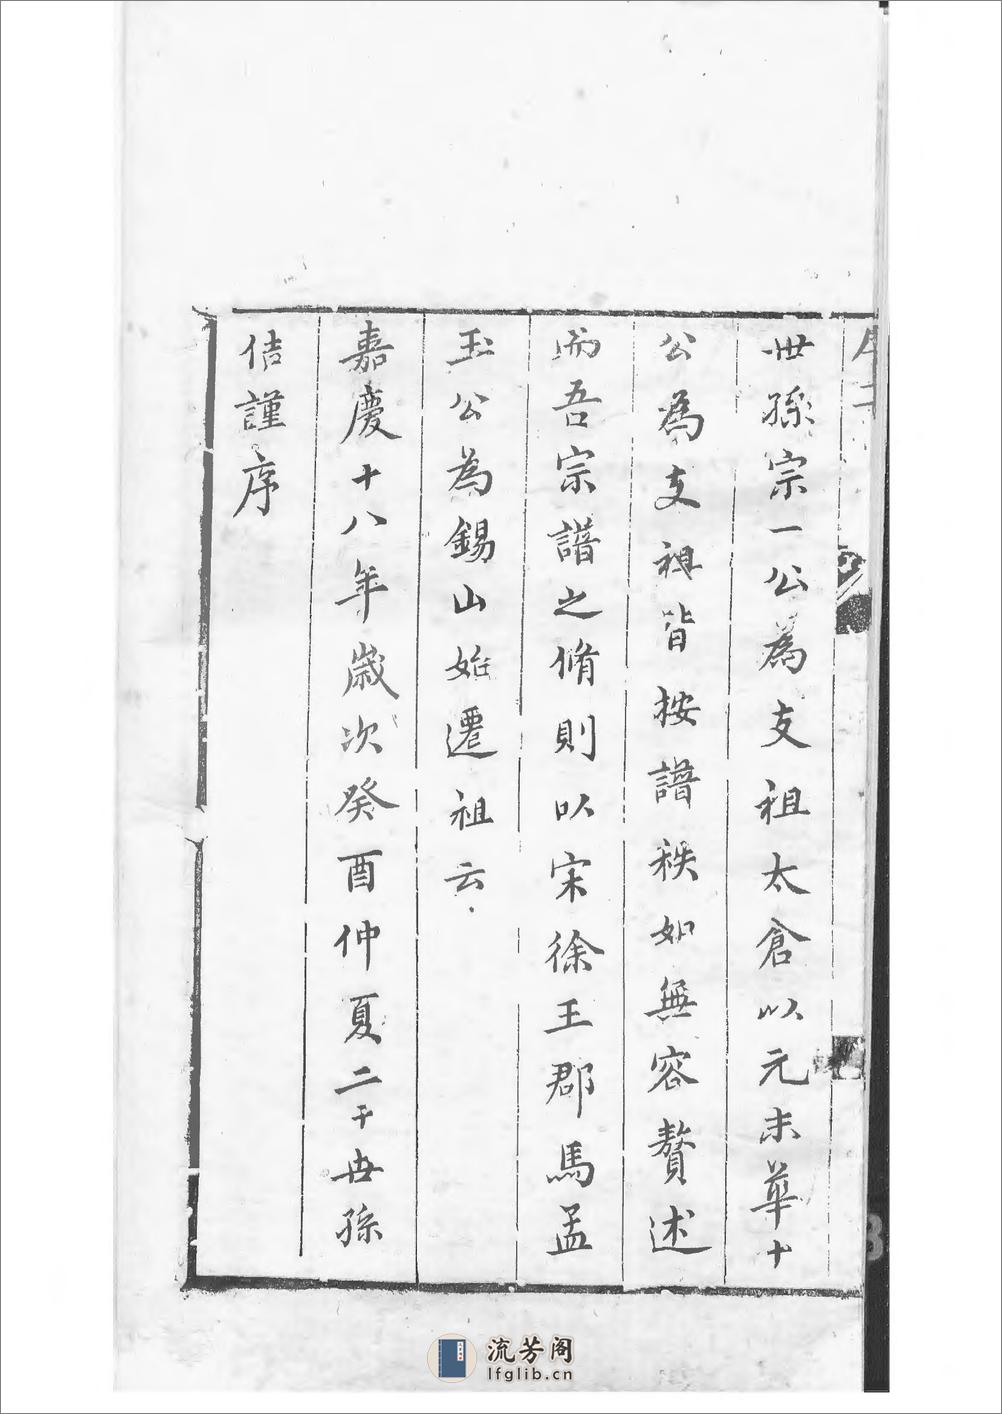 世孫宗一公為支祖太倉以元末華十
公為支祖皆按譜秩如無容贅述
而吾宗譜之脩則以宋徐王郡馬孟
玉公為錫山始遷祖云
嘉慶十八年歲次癸酉仲夏二十世孫
佶謹序
流芳阁
lfglib.cn